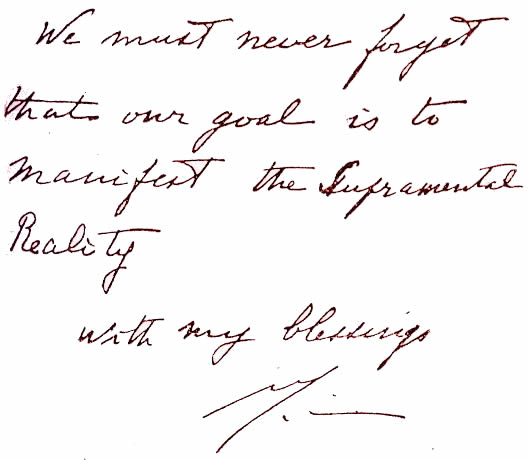 We must never forget
that our goal is to
manifest the Supramental
Reality
with my blessings